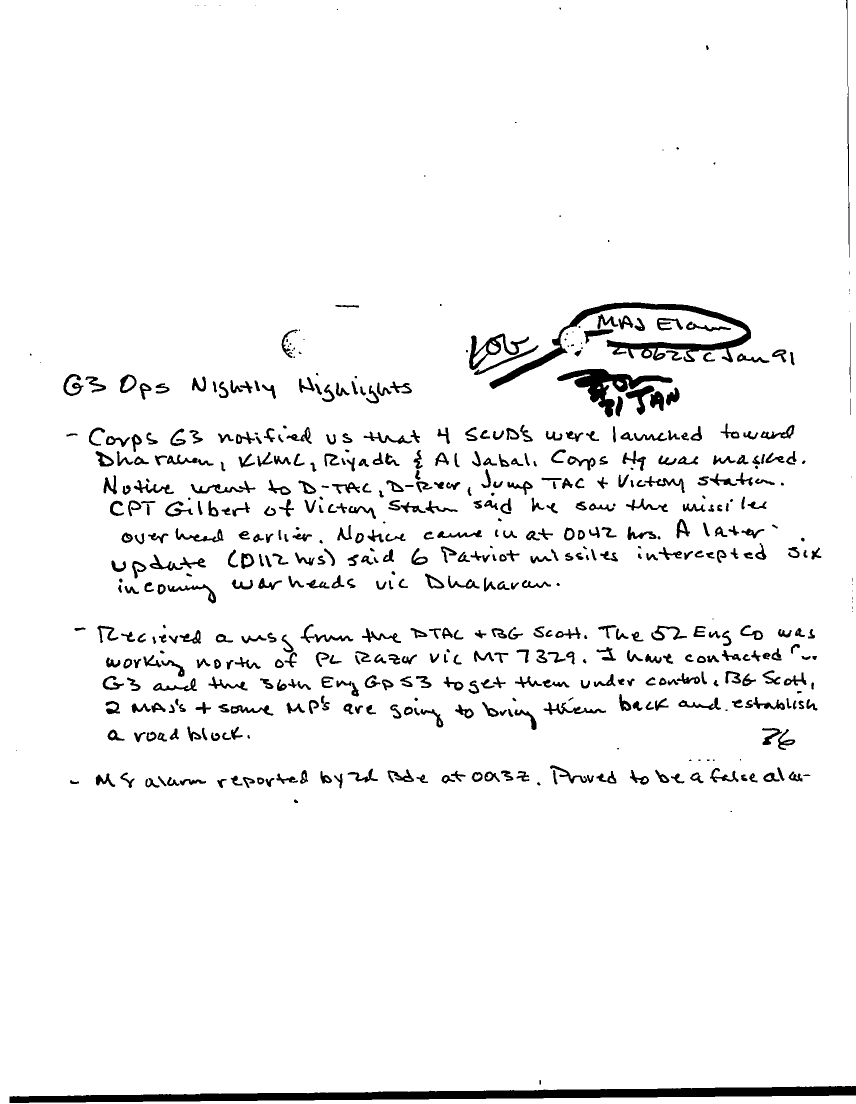 LOG
MAJ Elam
210625C Jan 91
21 JAN
G3 Ops Nightly Highlights
- Corps G3 notified us that 4 SCUD's were launched toward
Dharahen, KKMC, Riyadh & Al Jabal. Corps Hq was masked.
Notice went to D-TAC, D-Rear, Jump TAC + Victory Station.
CPT Gilbert of Victory Statn said he saw the missiles
overhead earlier. Notice came in at 0042 hrs. A later
update (0112 hrs) said 6 Patriot missiles intercepted six
incoming warheads vic Dhaharan.
- Recieved a msg from the DTAC + BG Scott. The 52 Eng Co was
working north of PL Razor vic MT 7329. I have contacted
G3 and the 36th Eng Gp S3 to get them under control. BG Scott,
2 MAJ's + some MP's are going to bring them back and establish
a road block.
76
- M8 alarm reported by 2d Bde at 0032. Proved to be a false